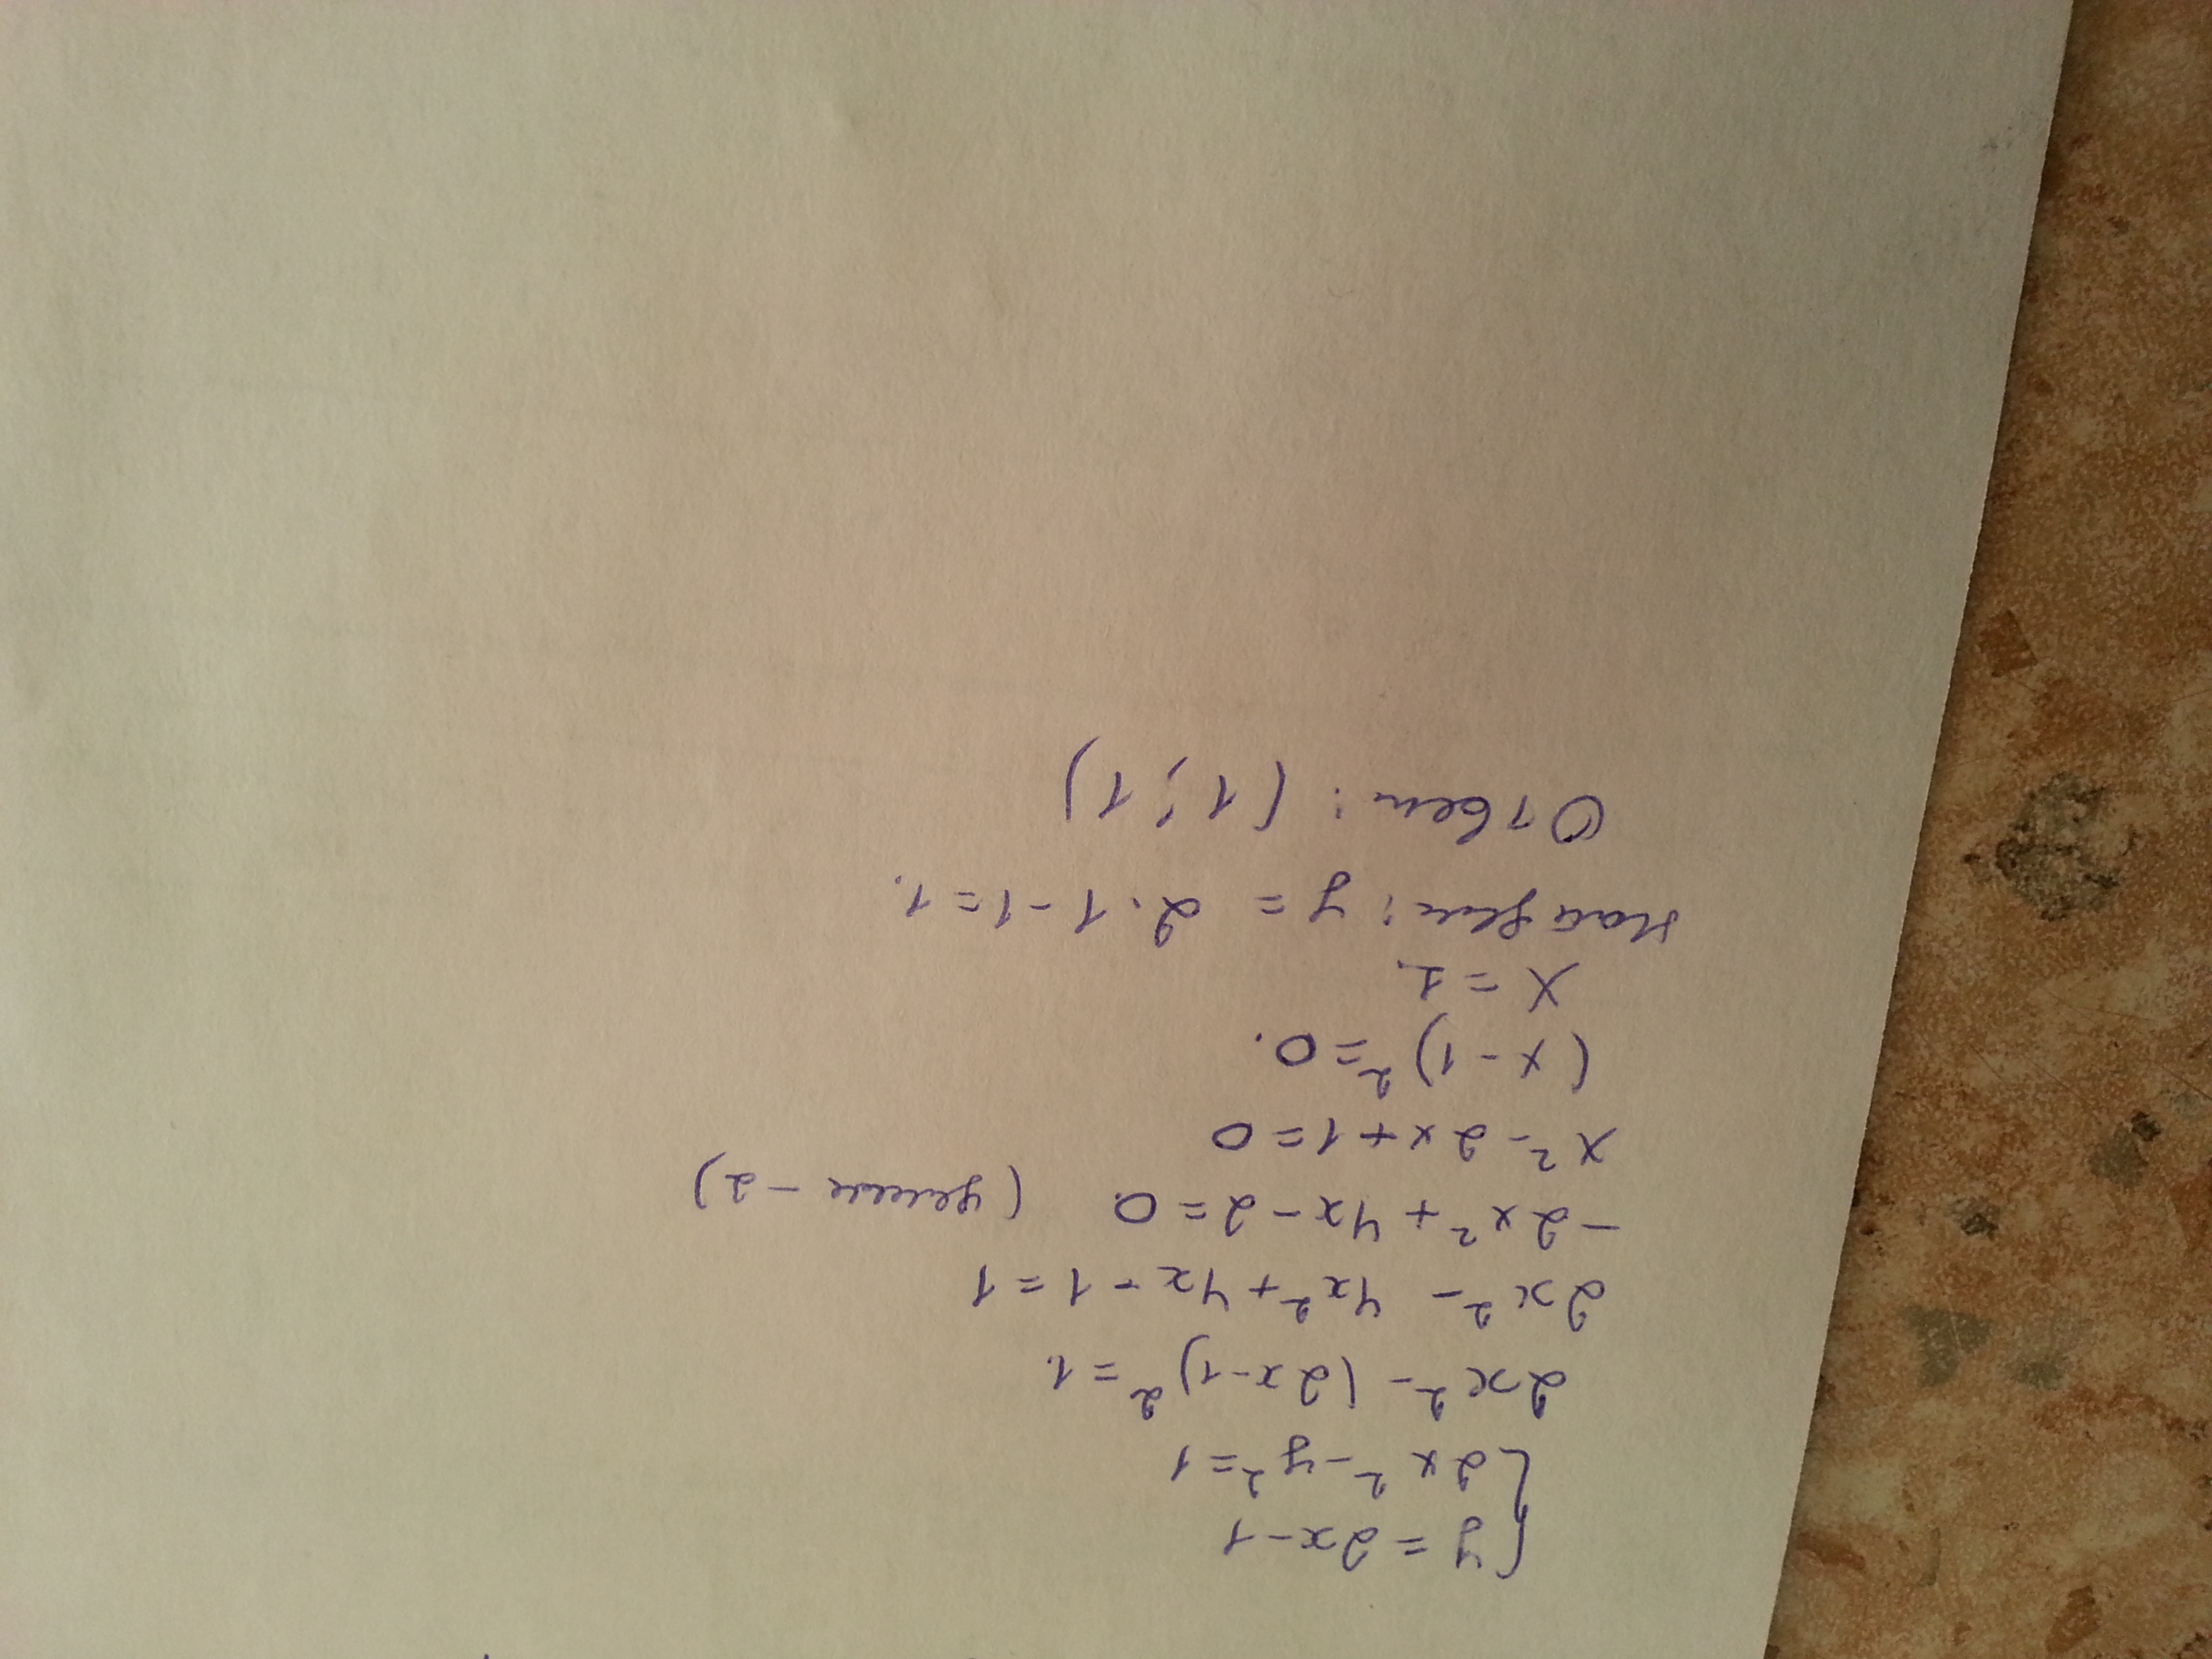 { y = 2x-1
2x² - y² = 1
2x² - (2x-1)² = 1.
2x² - 4x² + 4x - 1 = 1
-2x² + 4x - 2 = 0 (делим -2)
x² - 2x + 1 = 0
(x-1)² = 0.
x = 1.
найдем: y = 2·1-1=1.
Ответ: (1; 1)